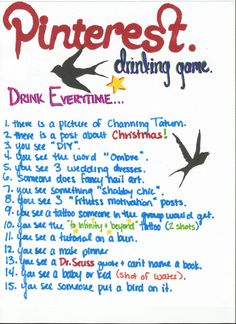 Pinterest.
drinking game.
DRINK EVERYTIME...
1. there is a picture of Channing Tatum.
2. there is a post about Christmas!
3. you see "DIY".
4. you see the word "Ombre".
5. you see 3 wedding dresses.
6. someone does fancy nail art.
7. you see something "Shabby chic".
8. you see 3 "fitness motivation" posts.
9. you see a tattoo someone in the group would get.
10. you see the "to infinity & beyond" tattoo (2 shots)
11. you see a tutorial on a bun.
12. you see a male pinner
13. you see a Dr. Seuss quote & can't name a book.
14. you see a baby or kid (shot of water).
15. you see someone put a bird on it.